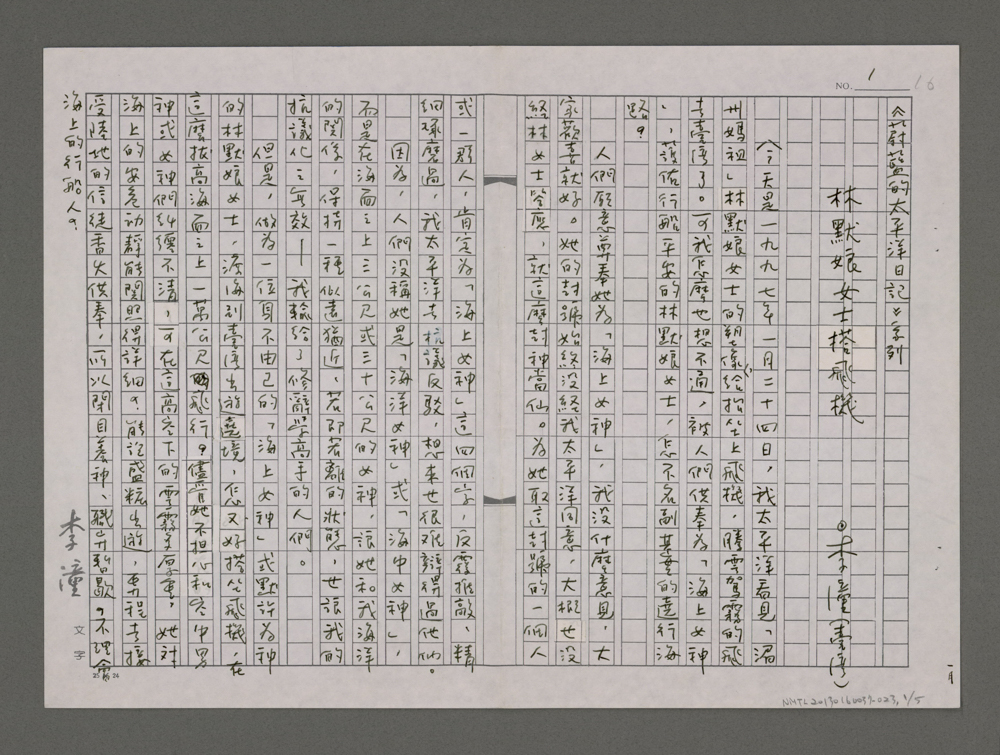 NO. 1
16
《蔚藍的太平洋日記》系列
林默娘女士搭飛機
◎李潼(臺灣)
今天是一九九七年一月二十四日,我太平洋看見「湄
州媽祖」林默娘女士的塑像給抬坐上飛機,騰雲駕霧的飛
去臺灣了。可我怎麼也想不通,被人們供奉為「海上女神
」,護佑行船平安的林默娘女士,怎不名副其實的遶行海
路?
人們願意尊奉她為「海上女神」,我沒什麼意見,大
家歡喜就好。她的封號始終沒經我太平洋同意,大概也沒
經林女士答應,就這麼封神當仙。為她取這封號的一個人
或一群人,肯定為「海上女神」這四個字,反覆推敲、精
細琢磨過,我太平洋去抗議反駁,想來也很難辯得過他們。
因為,人們沒稱她是「海洋女神」或「海中女神」,
而是在海面之上三公尺或三十公尺的女神,讓她和我海洋
的關係,保持一種似遠猶近、若即若離的狀態,也讓我的
抗議化之無效——我輸給了修辭學高手的人們。
但是,做為一位身不由己的「海上女神」或默許為神
的林默娘女士,渡海到臺灣出遊遶境,怎又好搭坐飛機,在
這麼拔高海面之上一萬公尺飛行?儘管她不担心和空中男
神或女神們糾纏不清,可在這高空下的雲霧厚重,她對
海上的安危動靜能關照得詳細?能說盛粧出遊,專程去接
受陸地的信徒香火供奉,所以閉目養神、職務暫歇,不理會
海上的行船人?
李潼
文字
25 × 24
NMTL20130160039-023, 1/5